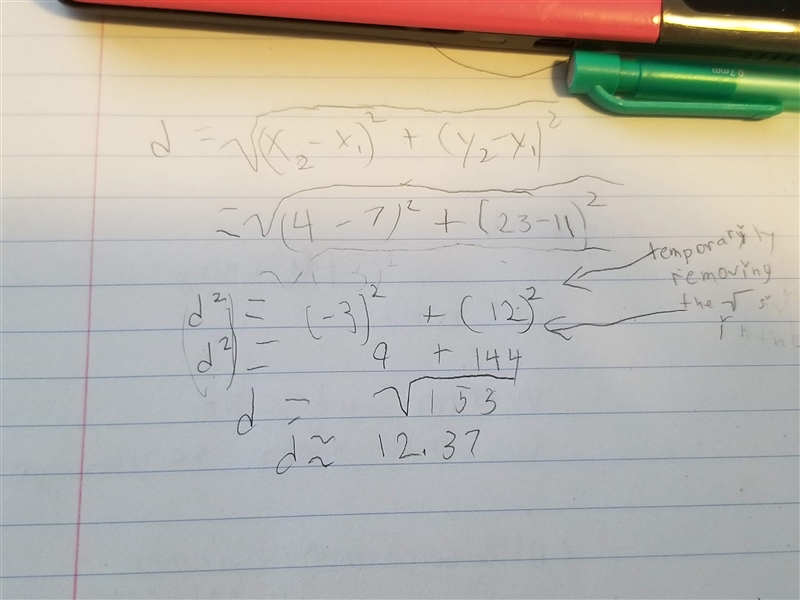 0.7mm
d = √(x₂ - x₁)² + (y₂ - y₁)²
= √(4 - 7)² + (23 - 11)²
temporarily
removing
the √
d² = (-3)² + (12)²
d² = 9 + 144
d = √153
d ≈ 12.37